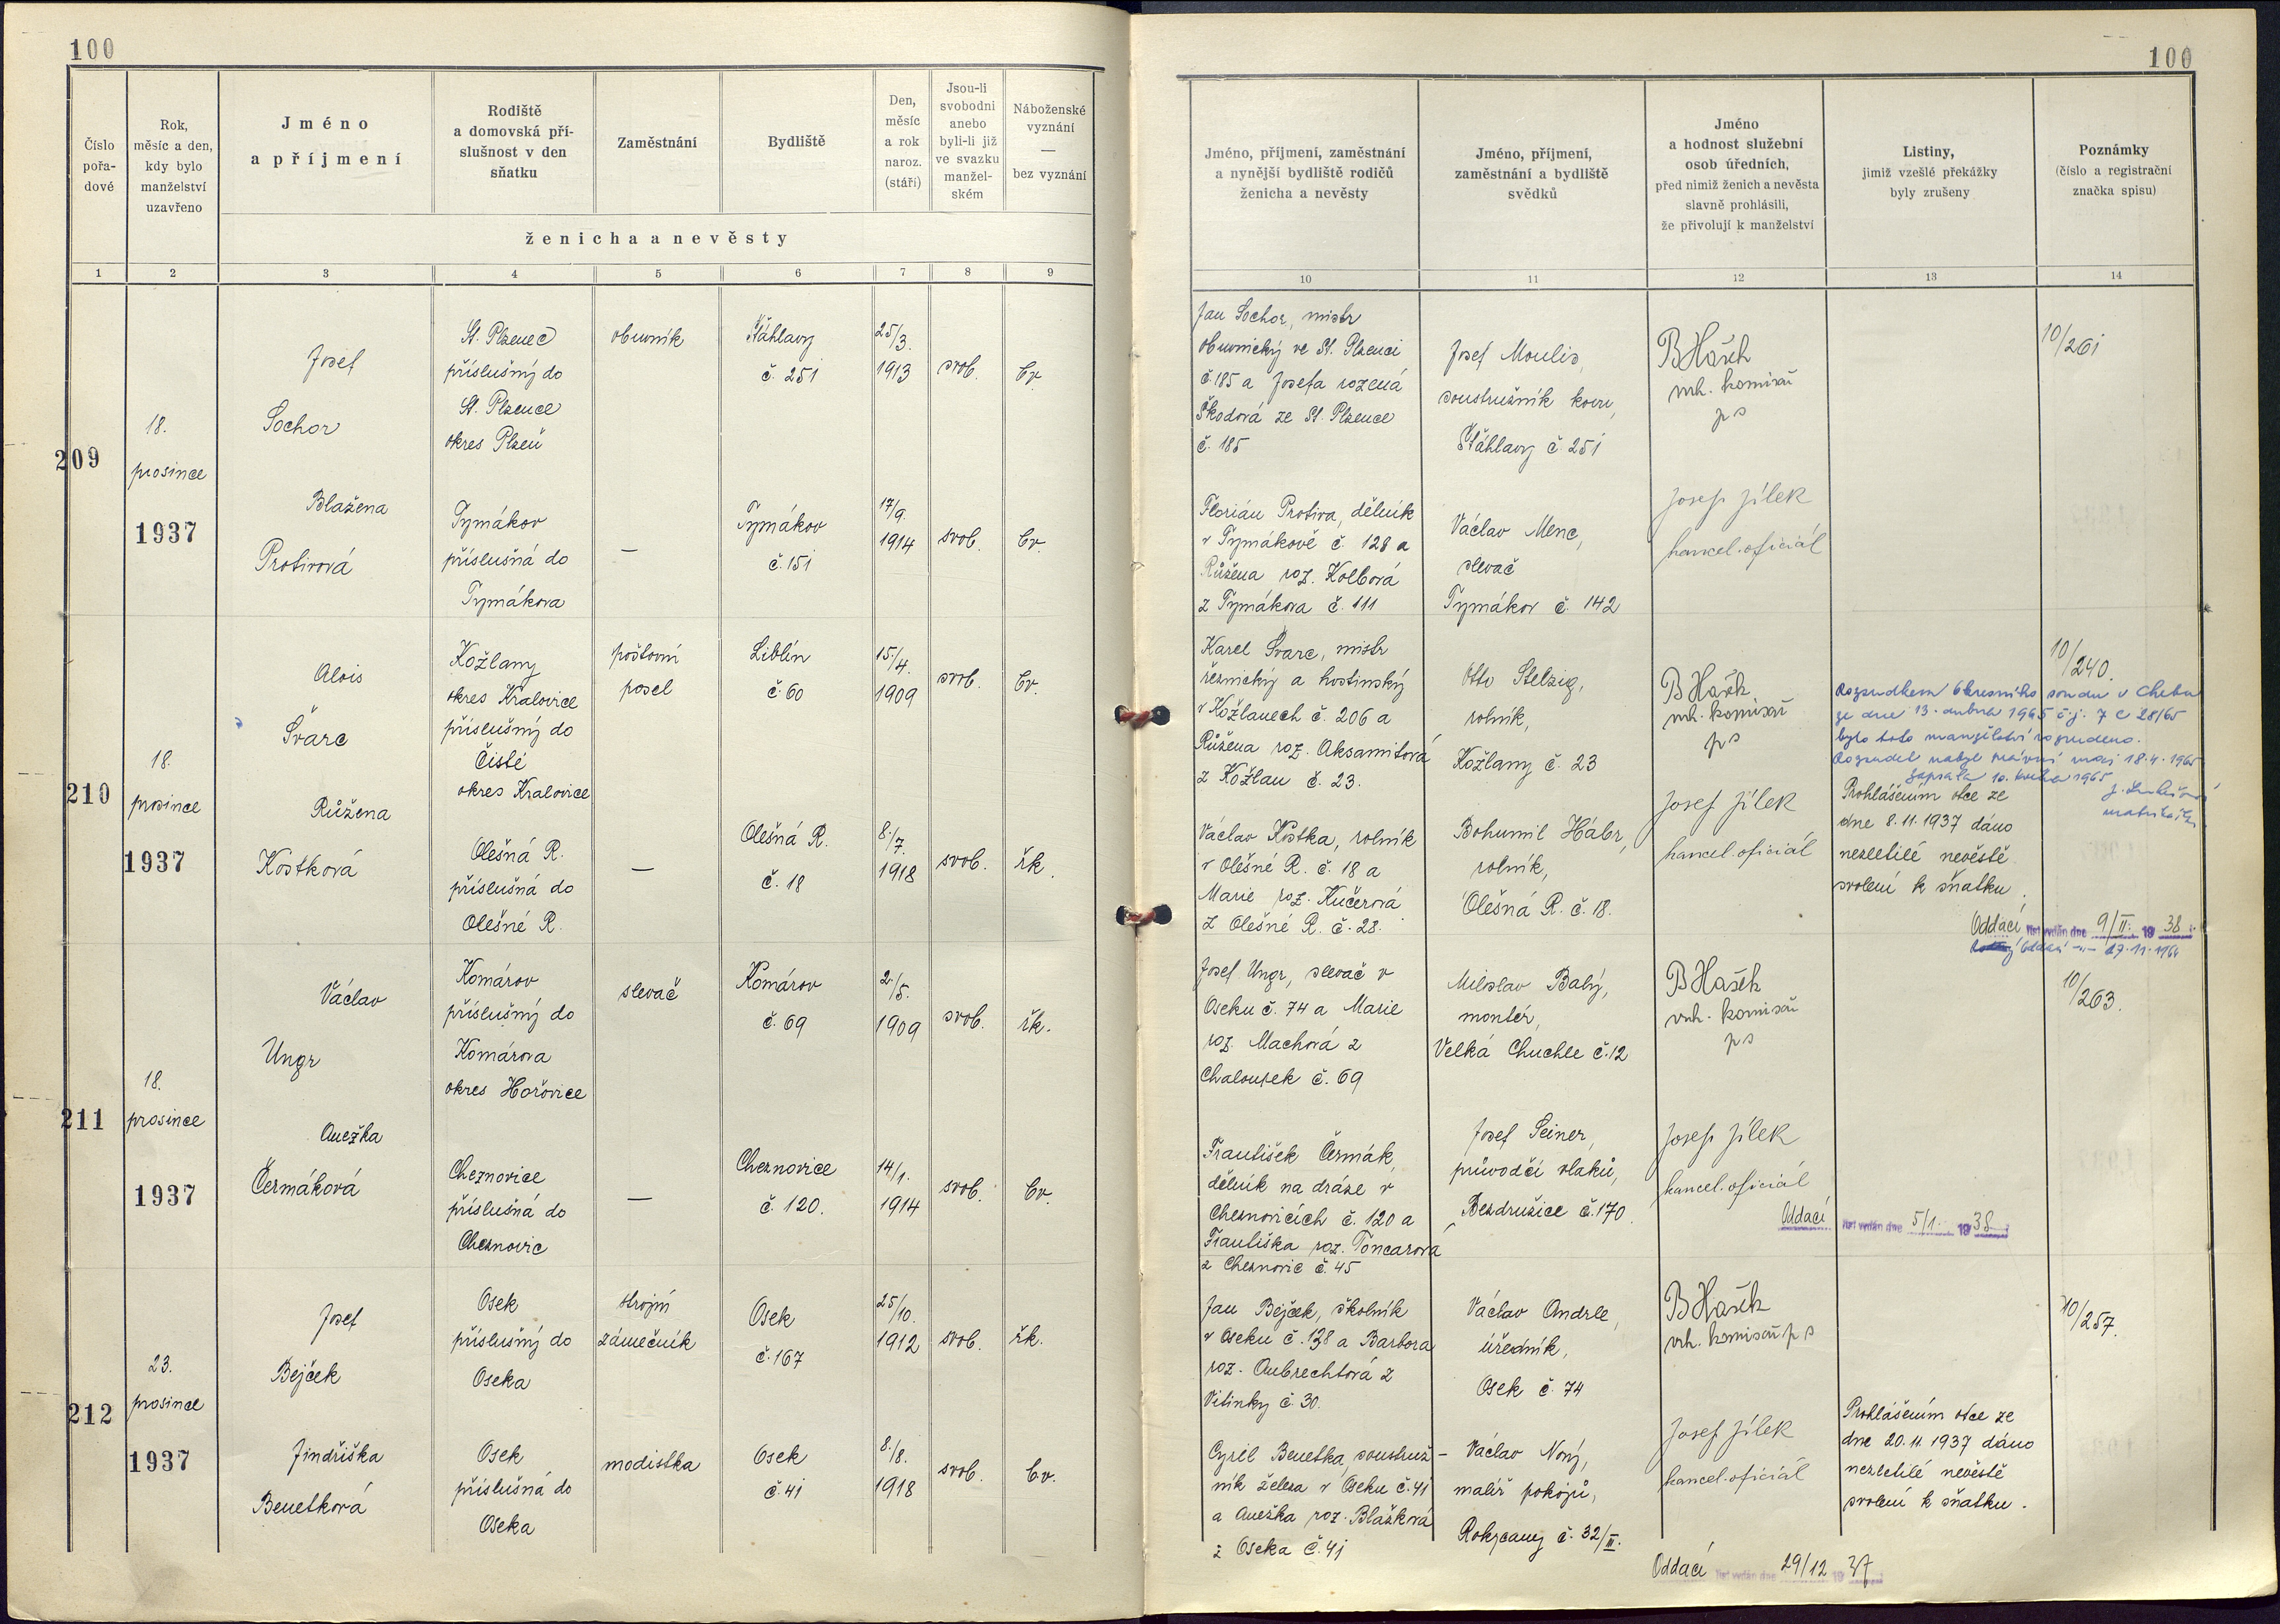 100
100
Číslo
pořa-
dové
Rok,
měsíc a den,
kdy bylo
manželství
uzavřeno
Jméno
a příjmení
Rodiště
a domovská pří-
slušnost v den
sňatku
Zaměstnání
Bydliště
Den,
měsíc
a rok
naroz.
(stáří)
Jsou-li
svobodni
anebo
byli-li již
ve svazku
manžel-
ském
Náboženské
vyznání
—
bez vyznání
ženicha a nevěsty
Jméno, příjmení, zaměstnání
a nynější bydliště rodičů
ženicha a nevěsty
Jméno, příjmení,
zaměstnání a bydliště
svědků
Jméno
a hodnost služební
osob úředních,
před nimiž ženich a nevěsta
slavně prohlásili,
že přivolují k manželství
Listiny,
jimiž vzešlé překážky
byly zrušeny
Poznámky
(číslo a registrační
značka spisu)
1 2 3 4 5 6 7 8 9 10 11 12 13 14
209
18.
prosince
1937
Josef
Sochor
St. Plzenec
příslušný do
St. Plzence
okres Plzeň
obuvník
Šťáhlavy
č. 251
25/3.
1913
svob.
čv.
Jan Sochor, mistr
obuvnický ve St. Plzenci
č. 185 a Josefa rozená
Škodová ze St. Plzence
č. 185
Josef Moulis,
soustružník kovu,
Šťáhlavy č. 251
B Hašek
vrh. komisař
ps
10/261
Blažena
Protivová
Tymákov
příslušná do
Tymákova
—
Tymákov
č. 151
17/9.
1914
svob.
čv.
Florián Protiva, dělník
v Tymákově č. 128 a
Růžena roz. Kolbová
z Tymákova č. 111
Václav Menc,
slevač
Tymákov č. 142
Josef Jílek
kancel. oficiál
210
18.
prosince
1937
Alois
Švarc
Kožlany
okres Kralovice
příslušný do
Čisté
okres Kralovice
poštovní
posel
Liblín
č. 60
15./4.
1909
svob.
čv.
Karel Švarc, mistr
řeznický a hostinský
v Kožlanech č. 206 a
Růžena roz. Aksamitová
z Kožlan č. 23.
Otto Stelzig,
rolník,
Kožlany č. 23
B Hašek
vrh. komisař
ps
10/240.
Rozsudkem Okresního soudu v Chebu
ze dne 13. dubna 1965 č.j. 7 C 28/65
bylo toto manželství rozvedeno.
Rozsudek nabyl právní moci 18.4.1965
Zapsala 10. května 1965
matrikářka
Růžena
Kostková
Olešná R.
příslušná do
Olešné R.
—
Olešná R.
č. 18
8./7.
1918
svob.
řk.
Václav Kostka, rolník
v Olešné R. č. 18 a
Marie roz. Kučerová
z Olešné R. č. 28.
Bohumil Hábr,
rolník,
Olešná R. č. 18.
Josef Jílek
kancel. oficiál
Prohlášením otce ze
dne 8.11.1937 dáno
nezletilé nevěstě
svolení k sňatku.
Oddací list vydán dne 9/II. 1938
Oddací -„- 27.11.1964
211
18.
prosince
1937
Václav
Ungr
Komárov
příslušný do
Komárova
okres Hořovice
slevač
Komárov
č. 69
2./5.
1909
svob.
řk.
Josef Ungr, slevač v
Oseku č. 74 a Marie
roz. Machová z
Chaloupek č. 69
Miloslav Babý,
montér,
Velká Chuchle č. 12
B Hašek
vrh. komisař
ps
10/263.
Anežka
Čermáková
Cheznovice
příslušná do
Cheznovic
—
Cheznovice
č. 120.
14/1.
1914
svob.
čv.
František Čermák,
dělník na dráze v
Cheznovicích č. 120 a
Františka roz. Toncarová
z Cheznovic č. 45
Josef Seiner,
průvodčí vlaků,
Bezdružice č. 170.
Josef Jílek
kancel. oficiál
Oddací list vydán dne 5/1. 1938
212
23.
prosince
1937
Josef
Bejček
Osek
příslušný do
Oseka
strojní
zámečník
Osek
č. 167
25/10.
1912
svob.
řk.
Jan Bejček, školník
v Oseku č. 138 a Barbora
roz. Aubrechtová z
Vitinky č. 30.
Václav Andrle,
úředník,
Osek č. 74
B Hašek
vrh. komisař ps
10/257.
Jindřiška
Benetková
Osek
příslušná do
Oseka
modistka
Osek
č. 41
8./8.
1918
svob.
čv.
Cyril Benetka, soustruž-
ník železa v Oseku č. 41
a Anežka roz. Blažková
z Oseka č. 41
Václav Nový,
malíř pokojů,
Rokycany č. 32/II.
Josef Jílek
kancel. oficiál
Prohlášením otce ze
dne 20.11.1937 dáno
nezletilé nevěstě
svolení k sňatku.
Oddací list vydán dne 29/12 1937